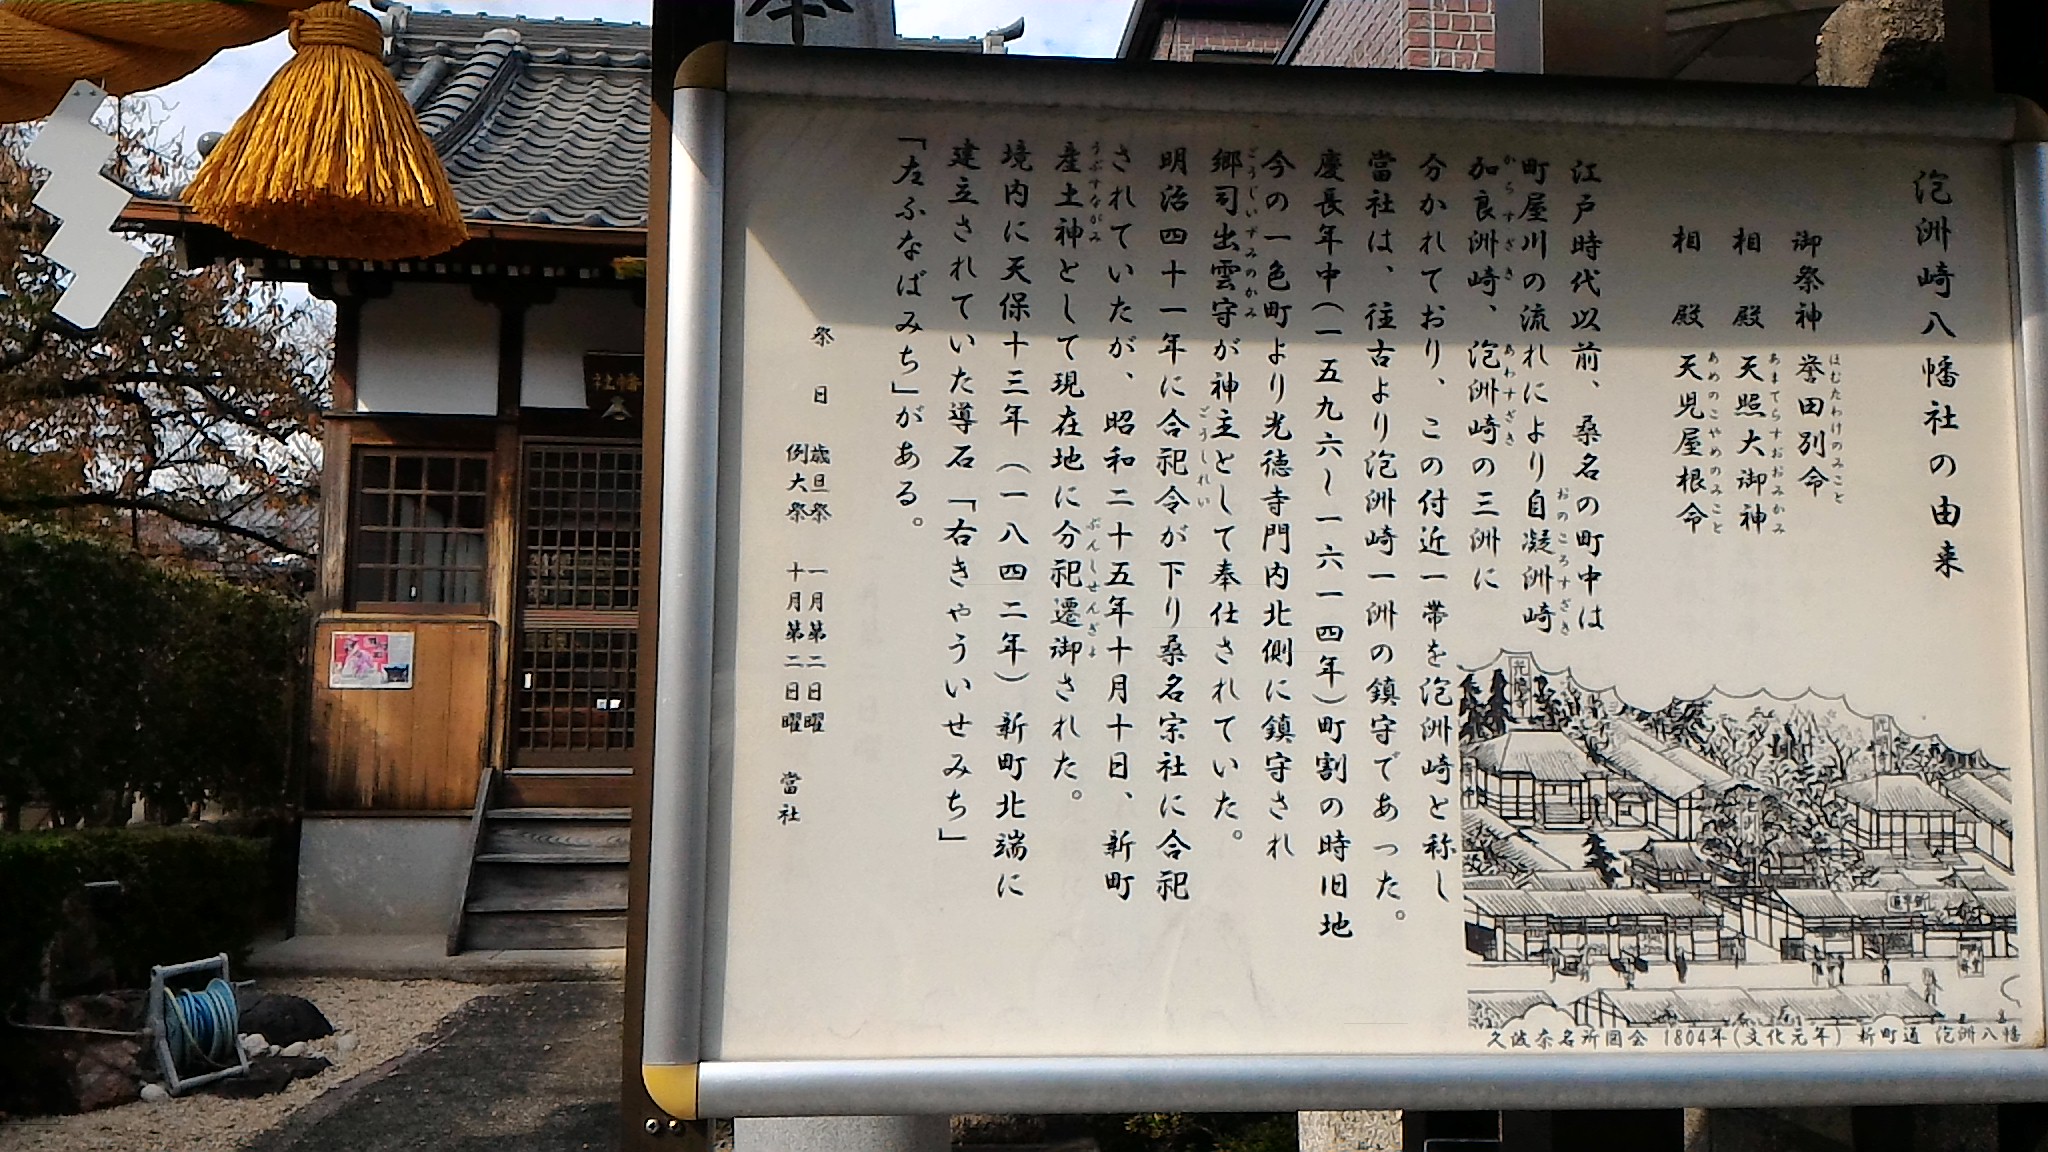 泡洲崎八幡社の由来
御祭神 誉田別命
ほむたわけのみこと
相殿 天照大御神
あまてらすおおみかみ
相殿 天児屋根命
あめのこやめのみこと
江戸時代以前、桑名の町中は
町屋川の流れにより自凝洲崎
おのころすざき
加良洲崎、泡洲崎の三洲に
からすざき あわすざき
分かれており、この付近一帯を泡洲崎と称し
當社は、往古より泡洲崎一洲の鎮守であった。
慶長年中(一五九六〜一六一四年)町割の時旧地
今の一色町より光徳寺門内北側に鎮守され
郷司出雲守が神主として奉仕されていた。
ごうじいずみのかみ
明治四十一年に合祀令が下り桑名宗社に合祀
ごうしれい
されていたが、昭和二十五年十月十日、新町
産土神として現在地に分祀遷御された。
うぶすながみ ぶんしせんぎょ
境内に天保十三年(一八四二年)新町北端に
建立されていた導石「右きゃういせみち」
「左ふなばみち」がある。
祭日 歳旦祭 一月第二日曜
例大祭 十月第二日曜
當社
久波奈名所図会 1804年(文化元年) 新町通 泡洲八幡
幡社
奉